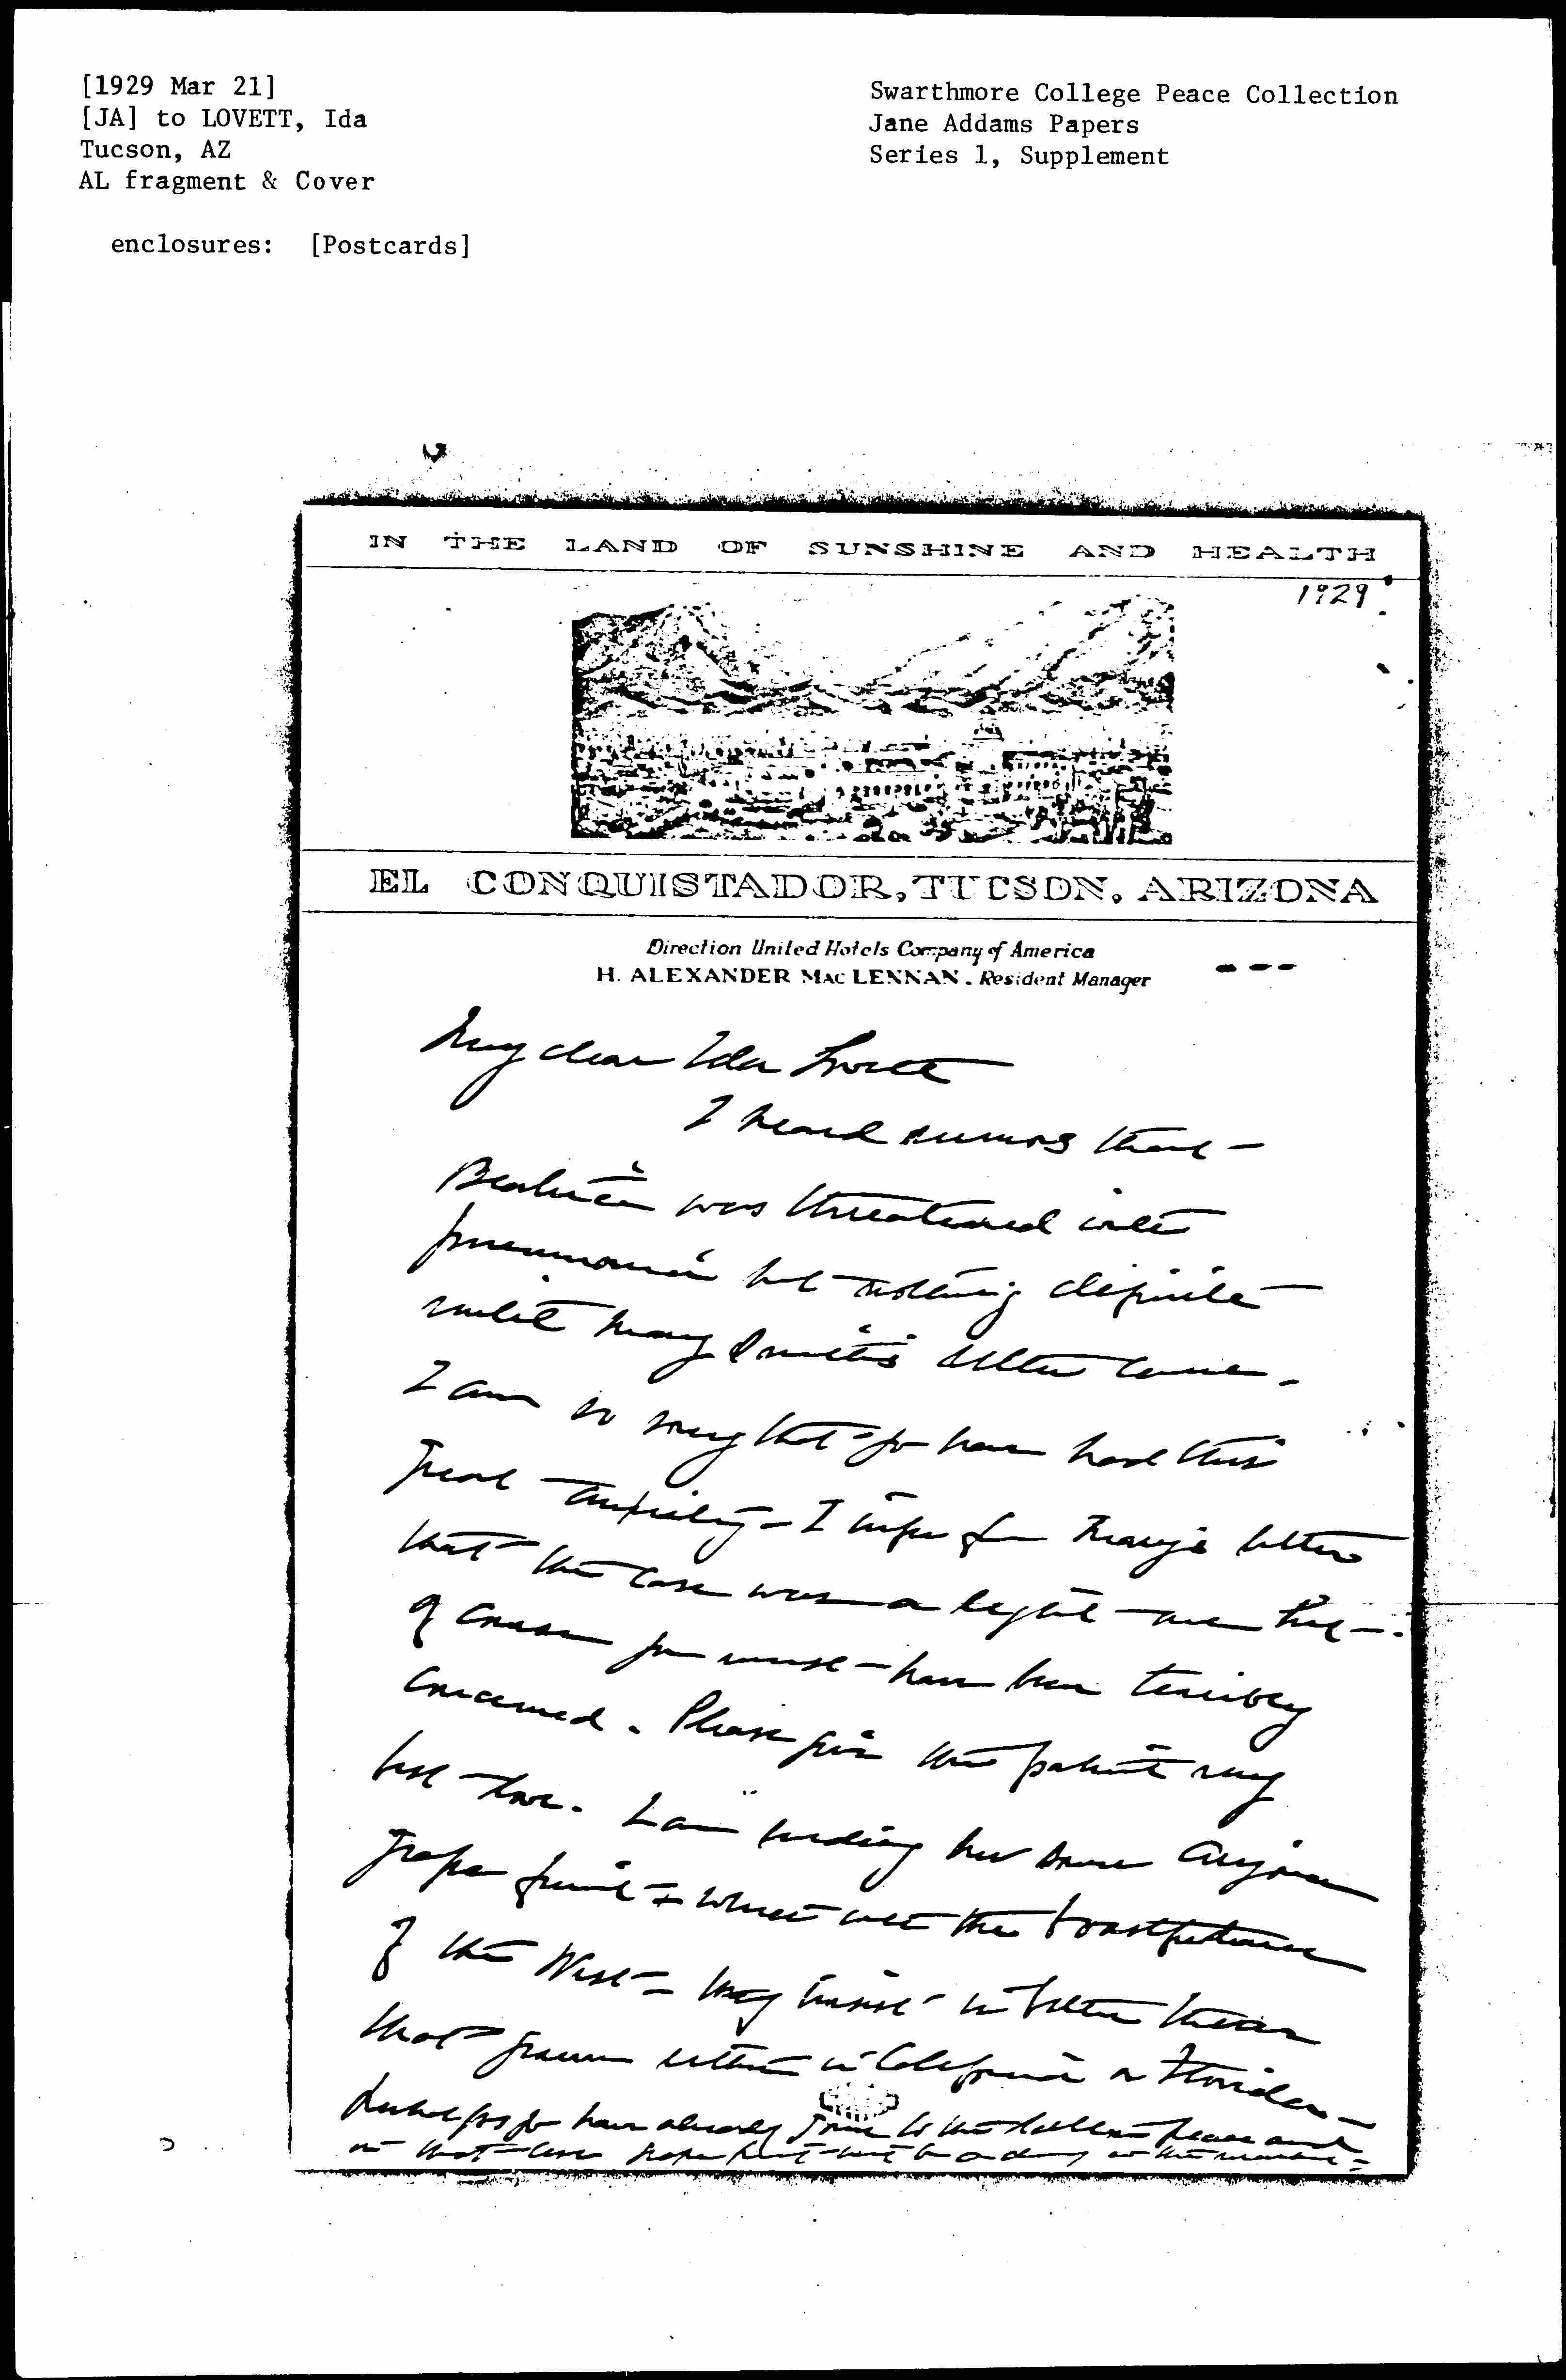 [1929 Mar 21]
[JA] to LOVETT, Ida
Tucson, AZ
AL fragment & Cover
enclosures: [Postcards]
Swarthmore College Peace Collection
Jane Addams Papers
Series 1, Supplement
IN THE LAND OF SUNSHINE AND HEALTH
1929
EL CONQUISTADOR, TUCSON, ARIZONA
Direction United Hotels Company of America
H. ALEXANDER MAC LENNAN. Resident Manager
My dear Ida Lovett
I heard rumors that
Beatrice was threatened with
pneumonia but nothing definite
until Mary Smith's letter came.
I am so sorry that you have had this
great anxiety - I infer from Mary's letters
that the case was a light one but
of course you must have been terribly
concerned. Please give the patient my
best love. I am sending her some Arizona
grape fruit which with the
of the West - they insist is better than
that grown either in California or Florida -
you have already gone to the
in that case grape fruit will be a drug on the market -